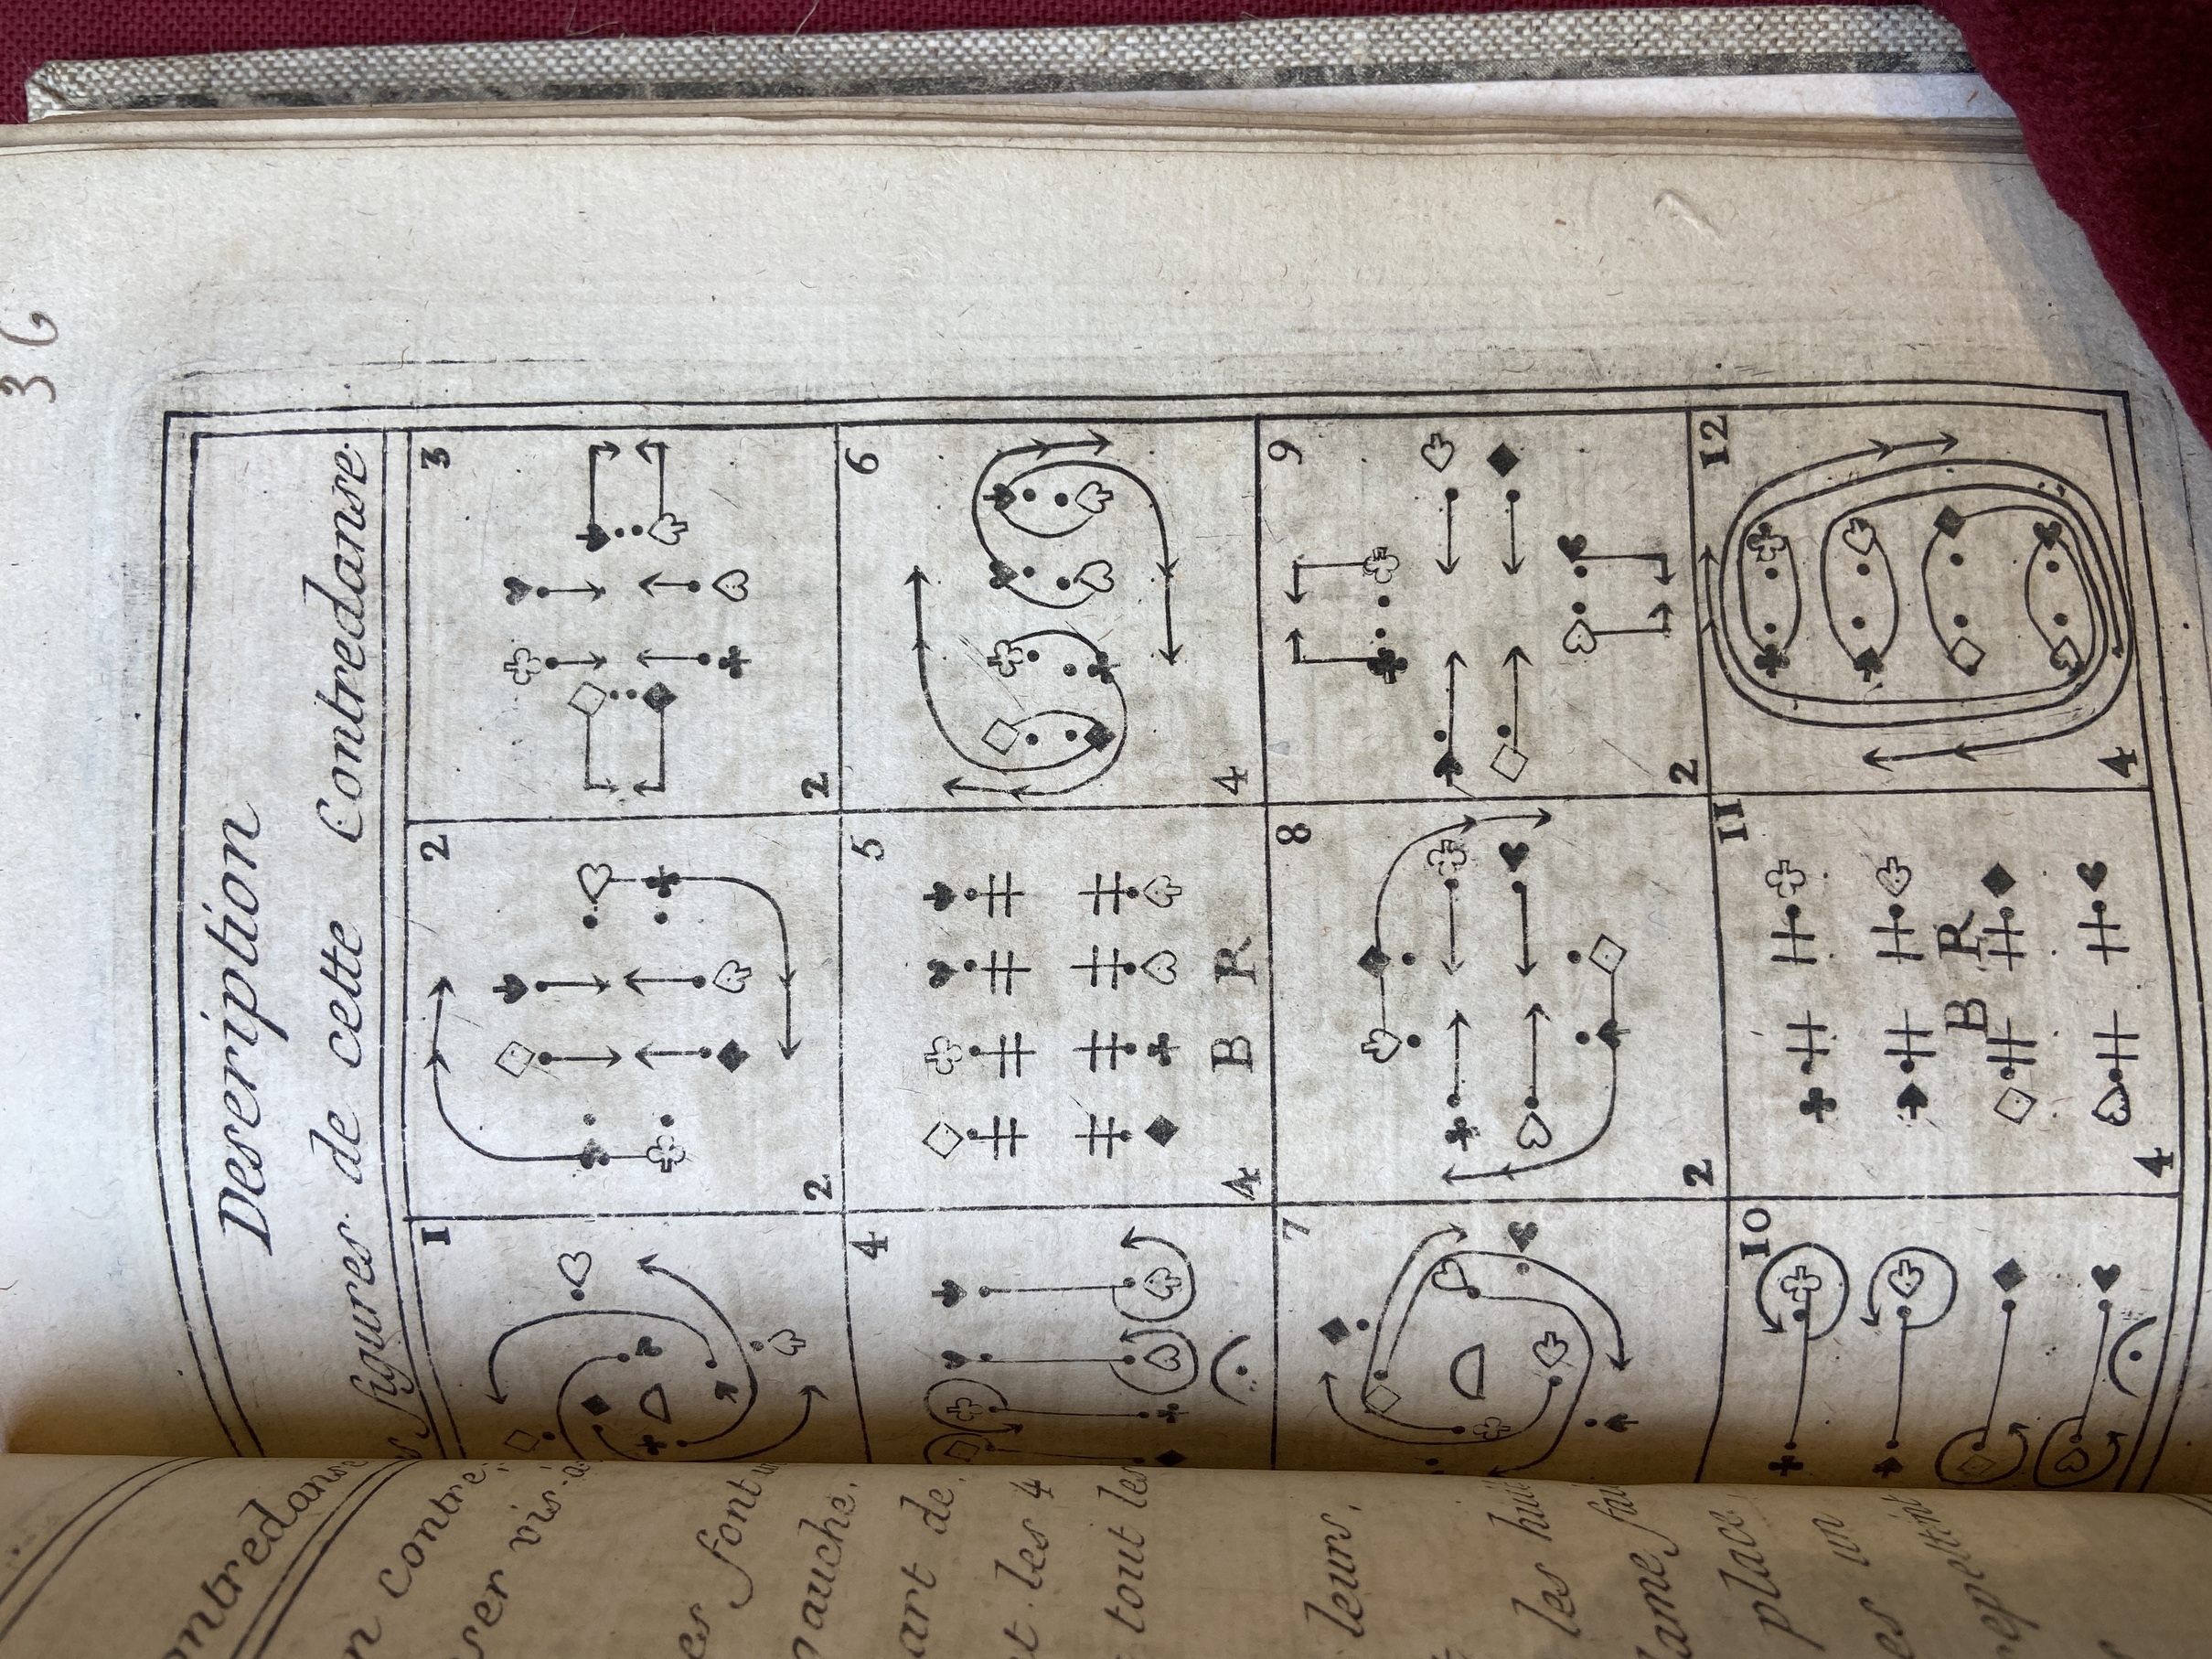 36
Description
figures de cette Contredanse.
1
2
2
3
2
4
5
4
B R
6
4
7
8
2
9
2
10
11
4
B R
12
4
ontredanse
n contre
ser vis-à
es font
gauche.
art de
et les 4
tout les
leurs,
les huit
dame fai
place,
es un